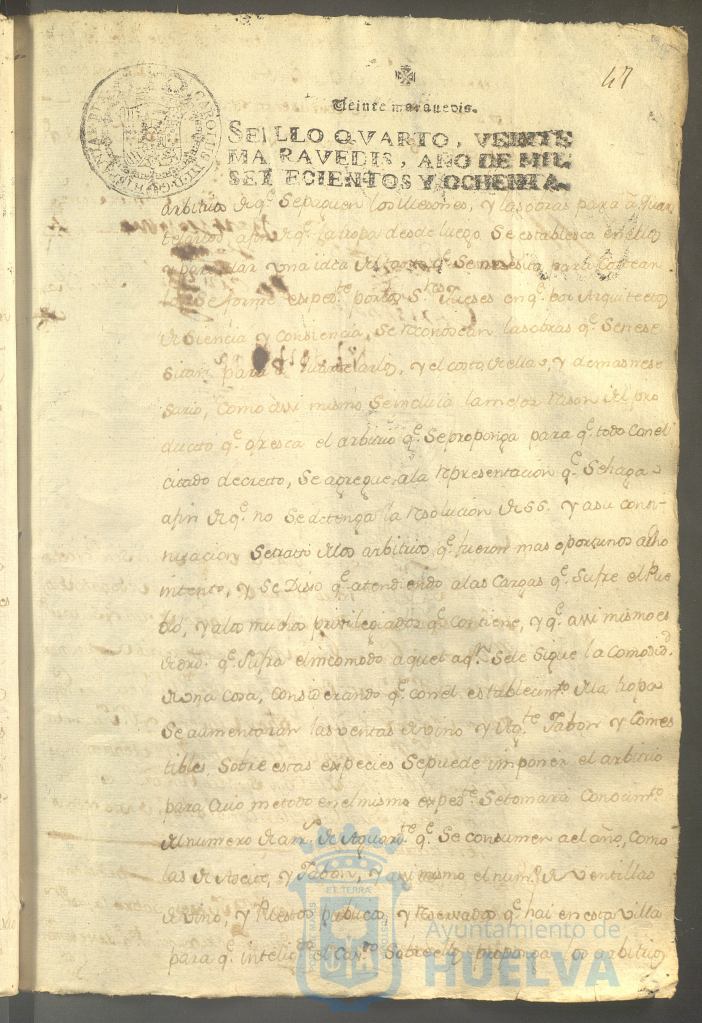 47
Veinte maravedis.
SELLO QVARTO, VEINTE
MARAVEDIS, AÑO DE MIL
SETECIENTOS Y OCHENTA.
arbitrios de qe. se paguen los Mesones, y las obras para
a fin de qe. la tropa desde luego se establesca en ellos
y para dar una idea de lo qe. se nesesita para
se forme expedte. por los Ss. Jueses en qe. por Arquitectos
de siencia y consiencia, se reconoscan las obras qe. se nese
sitan para el y el costo de ellas, y demas nese
sario, como assi mismo se incluia la mejor rason del pro
ducto qe. ofresca el arbitrio qe. se proponga para qe. todo con el
citado decretto, se agregue a la representacion qe. se haga
a fin de qe. no se detenga la resolucion de SS. y a su conti-
nuacion se trató de los arbitrios qe. fueron mas oportunos a dho
intento, y se Dixo qe. atendiendo a las Cargas qe. sufre el Pue
blo, y a los muchos privilegiados qe. contiene, y qe. assi mismo es
de dro. qe. sufra el incomodo aquel a qn. se le sigue la comodidd.
de una cosa, considerando qe. con el establecimto. de la tropa
se aumentarán las ventas de vino y Agte. Jabon y Comes
tibles, sobre estas especies se puede imponer el arbitrio
para cuio metodo en el mismo expedte. se tomará conocimto.
del numero de arrs. de Aguardte. qe. se consumen a el año, como
las de Aceite, y Jabon, y assi mismo el numo. de ventillas
de vino, y Puestos publicos, y reservados qe. hai en esta villa
para qe. el sobre ellos proponga por arbitrios
ET TERRÆ
Ayuntamiento de
HUELVA